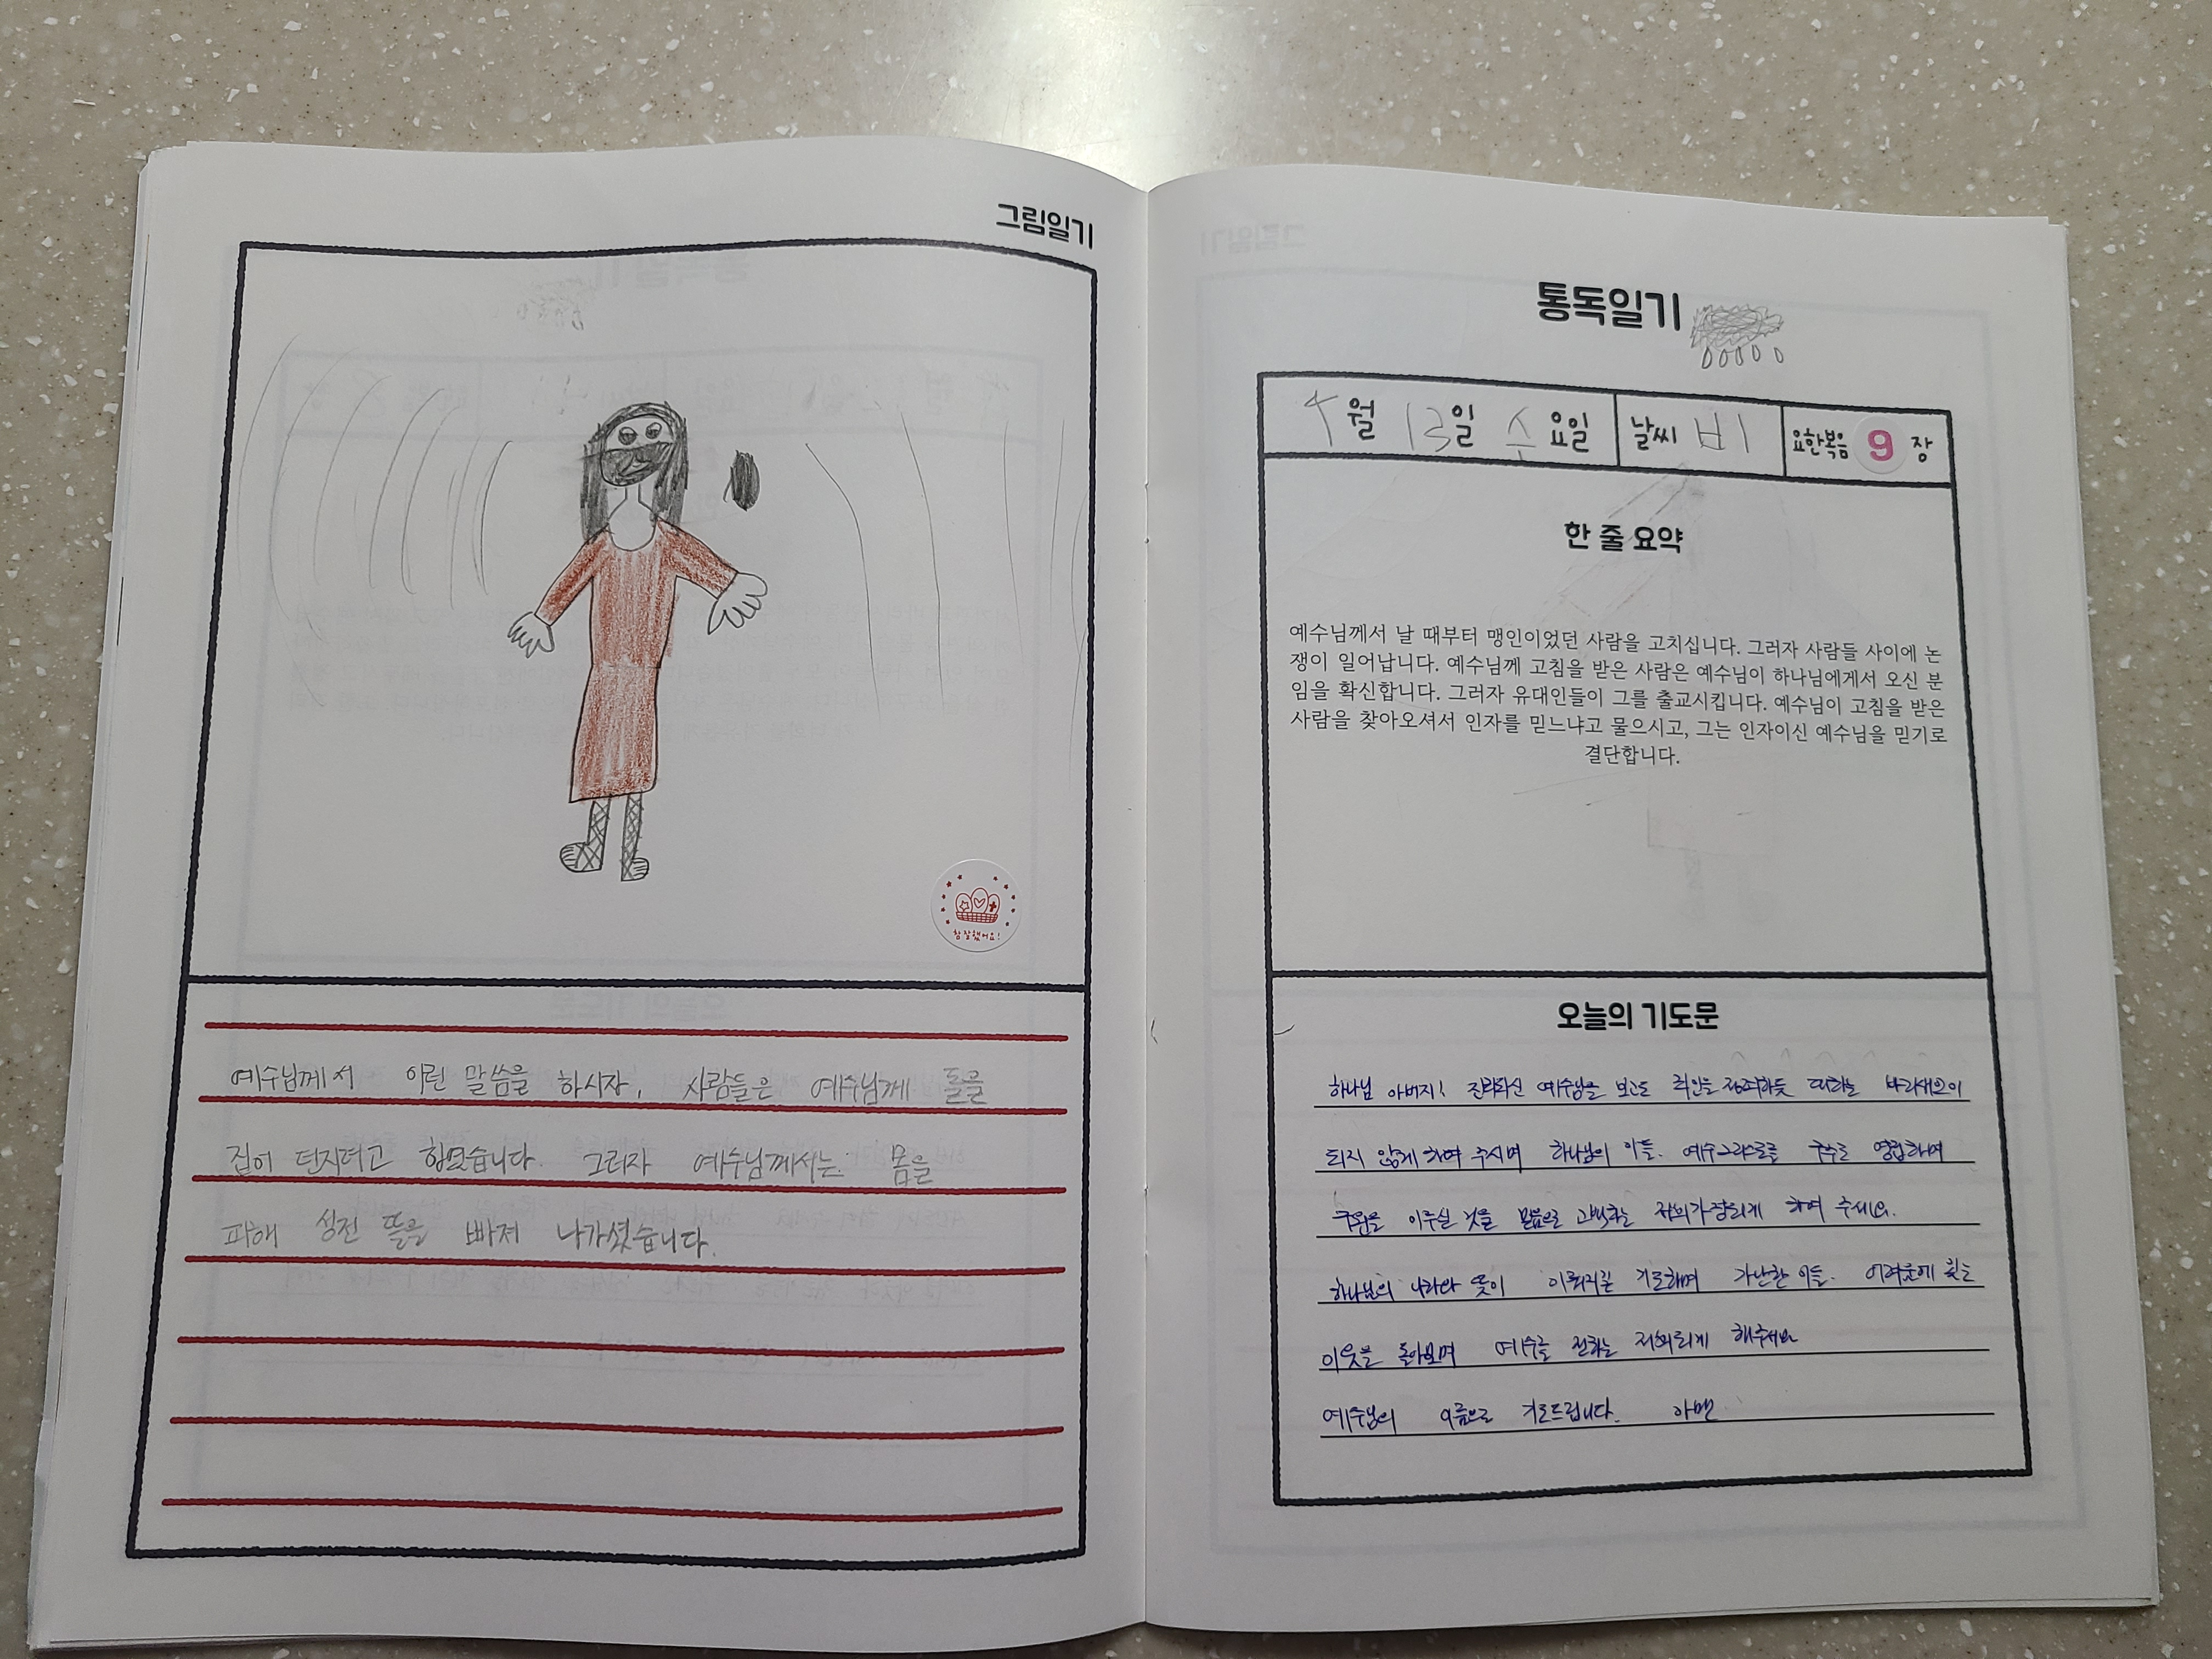 그림일기
참 잘했어요!
예수님께서 이런 말씀을 하시장, 사람들은 예수님께 돌을
집어 던지려고 하였습니다. 그러자 예수님께서는 몸을
피해 성전 뜰을 빠져 나가셨습니다.
통독일기
4월 13일 수요일 날씨 비 요한복음 9 장
한 줄 요약
예수님께서 날 때부터 맹인이었던 사람을 고치십니다. 그러자 사람들 사이에 논
쟁이 일어납니다. 예수님께 고침을 받은 사람은 예수님이 하나님에게서 오신 분
임을 확신합니다. 그러자 유대인들이 그를 출교시킵니다. 예수님이 고침을 받은
사람을 찾아오셔서 인자를 믿느냐고 물으시고, 그는 인자이신 예수님을 믿기로
결단합니다.
오늘의 기도문
하나님 아버지! 진리되신 예수님을 보고도 죄인을 정죄하듯 대하는 바리새인이
되지 않게 하여 주시며 하나님의 아들. 예수그리스도를 구주로 영접하여
구원을 이루신 것을 믿음으로 고백하는 저희가정되게 하여 주세요.
하나님의 나라와 뜻이 이뤄지길 기도하며 가난한 이들. 어려움에 있는
이웃을 돌아보며 예수를 전하는 저희되게 해주세요
예수님의 이름으로 기도드립니다. 아멘